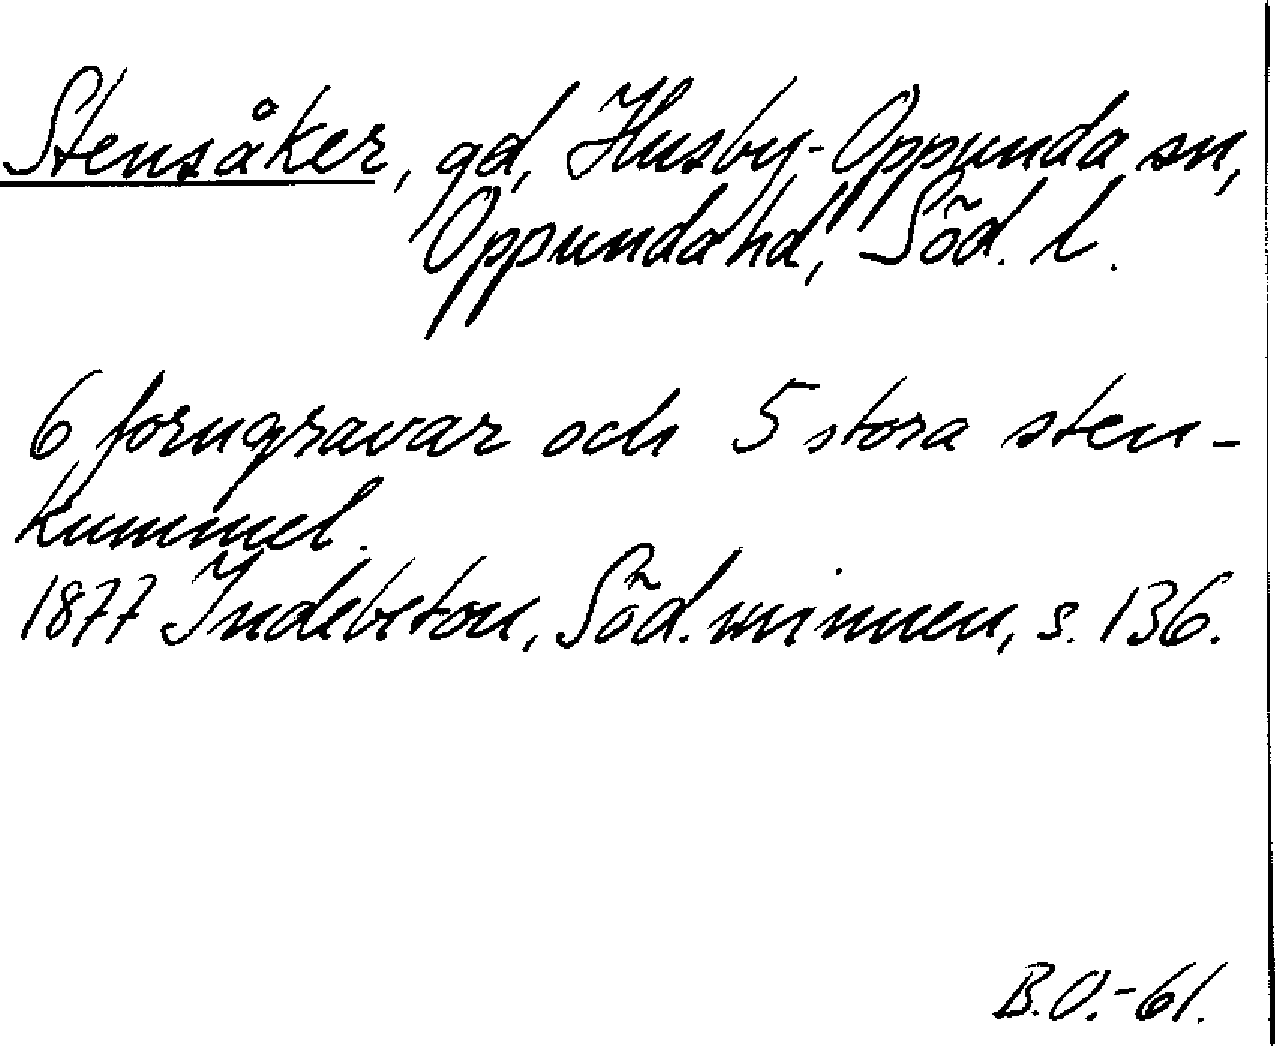 Stensåker, gd, Husby-Oppunda sn,
Oppunda hd, Söd. l.
6 forngravar och 5 stora sten-
kummel.
1877 Indebetou, Söd. minnen, s. 136.
B.O.-61.